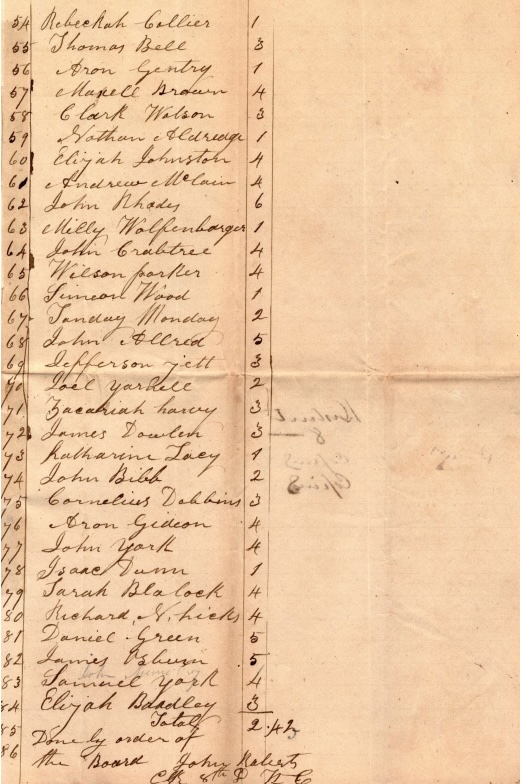 54 Rebeckah Collier 1
55 Thomas Bell 3
56 Aron Gentry 1
57 Maxell Brown 4
58 Clark Wolson 3
59 Nathan Aldredge 1
60 Elijah Johnston 4
61 Andrew McLain 4
62 John Rhodes 6
63 Milly Wolfenbarger 1
64 John Crabtree 4
65 Wilson parker 4
66 Simeon Wood 1
67 Tanday Monday 2
68 John Allred 5
69 Jefferson jett 3
70 Joel yarbell 2
71 Zacariah harvy 3
72 James Dowlen 3
73 Katharine Lacy 1
74 John Bibb 2
75 Cornelius Dobbins 3
76 Aron Gideon 4
77 John York 4
78 Isaac Dunn 1
79 Sarah Blalock 4
80 Richard, N, hicks 4
81 Daniel Green 5
82 James Osburn 5
83 Samuel york 4
84 Elijah Bradley 3
85 Total 242
86 Done by order of
the Board John Roberts
Clk 8th D